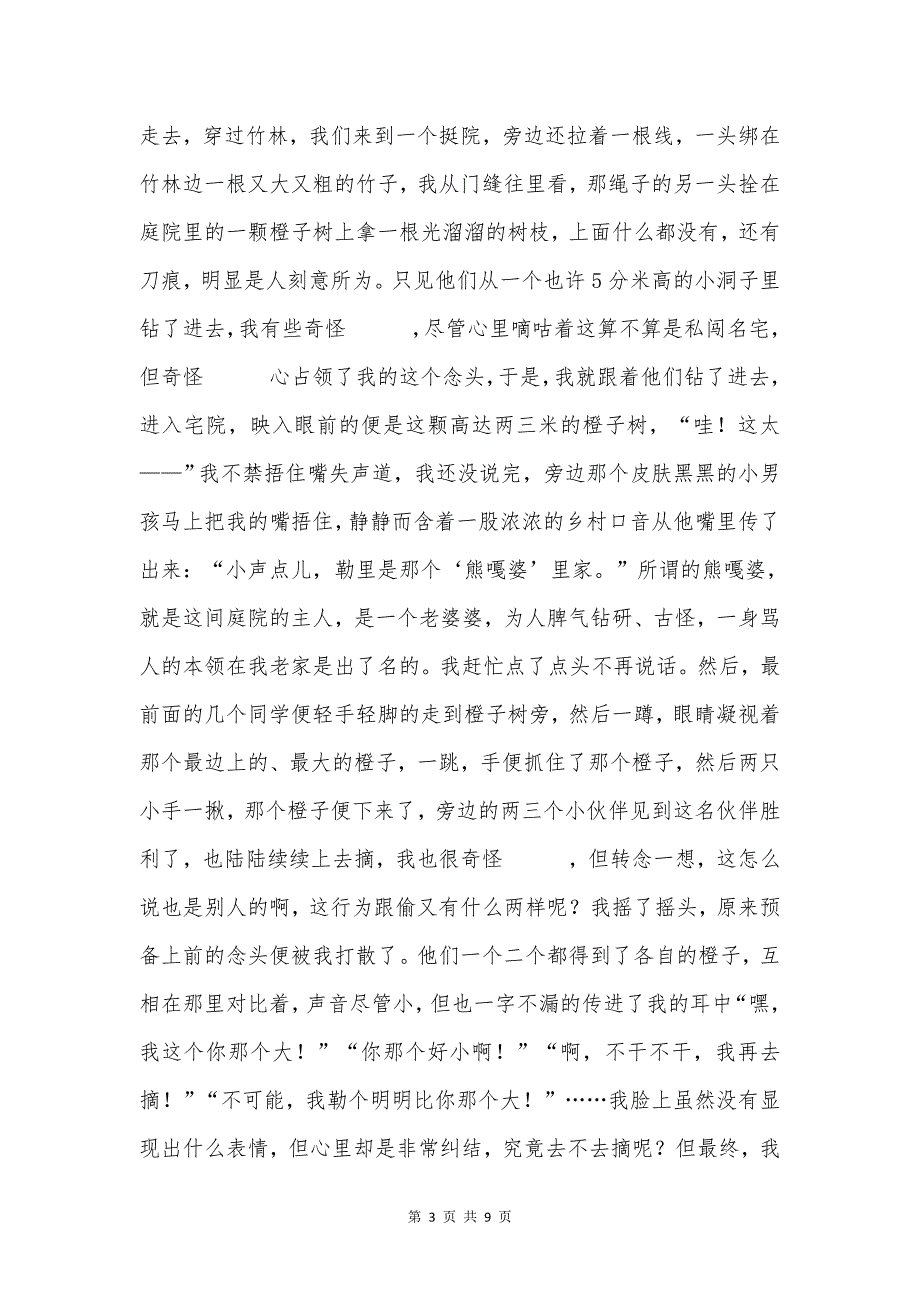 走去，穿过竹林，我们来到一个挺院，旁边还拉着一根线，一头绑在
竹林边一根又大又粗的竹子，我从门缝往里看，那绳子的另一头拴在
庭院里的一颗橙子树上拿一根光溜溜的树枝，上面什么都没有，还有
刀痕，明显是人刻意所为。只见他们从一个也许 5 分米高的小洞子里
钻了进去，我有些奇怪　　　，尽管心里嘀咕着这算不算是私闯名宅，
但奇怪　　　心占领了我的这个念头，于是，我就跟着他们钻了进去，
进入宅院，映入眼前的便是这颗高达两三米的橙子树，“哇！这太
——”我不禁捂住嘴失声道，我还没说完，旁边那个皮肤黑黑的小男
孩马上把我的嘴捂住，静静而含着一股浓浓的乡村口音从他嘴里传了
出来：“小声点儿，勒里是那个‘熊嘎婆’里家。”所谓的熊嘎婆，
就是这间庭院的主人，是一个老婆婆，为人脾气钻研、古怪，一身骂
人的本领在我老家是出了名的。我赶忙点了点头不再说话。然后，最
前面的几个同学便轻手轻脚的走到橙子树旁，然后一蹲，眼睛凝视着
那个最边上的、最大的橙子，一跳，手便抓住了那个橙子，然后两只
小手一揪，那个橙子便下来了，旁边的两三个小伙伴见到这名伙伴胜
利了，也陆陆续续上去摘，我也很奇怪　　　，但转念一想，这怎么
说也是别人的啊，这行为跟偷又有什么两样呢？我摇了摇头，原来预
备上前的念头便被我打散了。他们一个二个都得到了各自的橙子，互
相在那里对比着，声音尽管小，但也一字不漏的传进了我的耳中“嘿，
我这个你那个大！”“你那个好小啊！”“啊，不干不干，我再去
摘！”“不可能，我勒个明明比你那个大！”……我脸上虽然没有显
现出什么表情，但心里却是非常纠结，究竟去不去摘呢？但最终，我
第 3 页 共 9 页